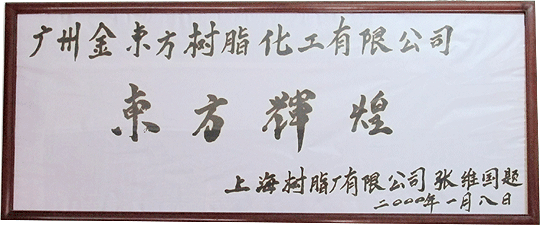 广州金东方树脂化工有限公司
東方輝煌
上海树脂厂有限公司 张维国题
二000年一月八日